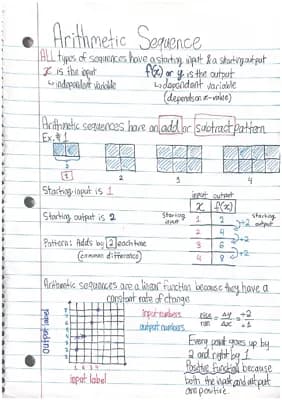 Arithmetic Sequence
ALL types of sequences have a starting input & a starting output
x is the input
f(x) or y is the output
↳ independent variable
↳ dependent variable
(depends on x-value)
Arithmetic sequences have an add or subtract pattern
Ex. #1
2
1
2
3
4
Starting input is 1
Starting output is 2
Pattern: Adds by 2 each time
(common difference)
input output
x f(x)
Starting input
1 2
2 4
3 6
4 8
+2
+2
+2
starting output
Arithmetic sequences are a linear function because they have a
constant rate of change
Output label
Input label
input numbers
output numbers
rise/run = Δy/Δx = +2/+1
Every point goes up by
2 and right by 1
Positive function because
both the input and output
are positive.